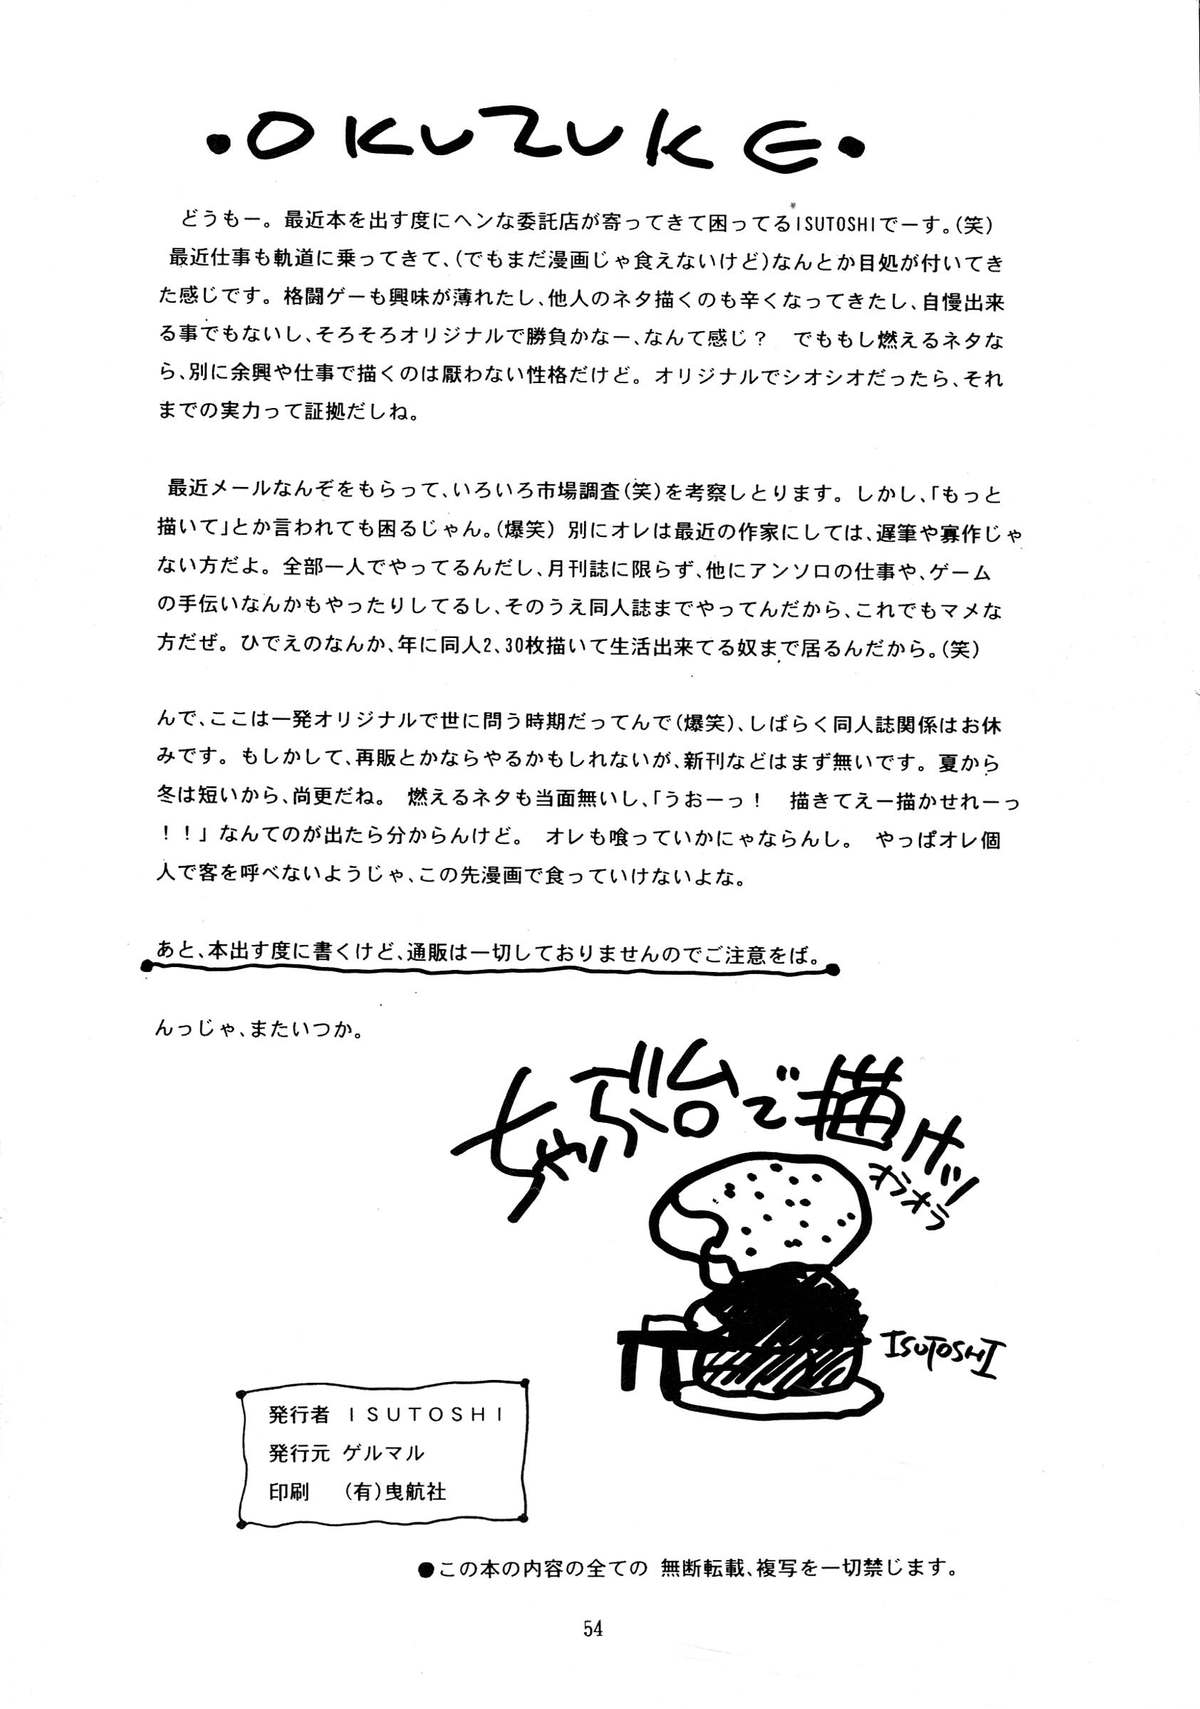 •OKUZUKE•
どうもー。最近本を出す度にヘンな委託店が寄ってきて困ってるISUTOSHIでーす。(笑)
最近仕事も軌道に乗ってきて、(でもまだ漫画じゃ食えないけど)なんとか目処が付いてき
た感じです。格闘ゲーも興味が薄れたし、他人のネタ描くのも辛くなってきたし、自慢出来
る事でもないし、そろそろオリジナルで勝負かなー、なんて感じ？　でももし燃えるネタな
ら、別に余興や仕事で描くのは厭わない性格だけど。オリジナルでシオシオだったら、それ
までの実力って証拠だしね。
最近メールなんぞをもらって、いろいろ市場調査(笑)を考察しとります。しかし、「もっと
描いて」とか言われても困るじゃん。(爆笑) 別にオレは最近の作家にしては、遅筆や寡作じゃ
ない方だよ。全部一人でやってるんだし、月刊誌に限らず、他にアンソロの仕事や、ゲーム
の手伝いなんかもやったりしてるし、そのうえ同人誌までやってんだから、これでもマメな
方だぜ。ひでえのなんか、年に同人2、30枚描いて生活出来てる奴まで居るんだから。(笑)
んで、ここは一発オリジナルで世に問う時期だってんで(爆笑)、しばらく同人誌関係はお休
みです。もしかして、再販とかならやるかもしれないが、新刊などはまず無いです。夏から
冬は短いから、尚更だね。　燃えるネタも当面無いし、「うおーっ！　描きてえー描かせれーっ
！！」なんてのが出たら分からんけど。　オレも喰っていかにゃならんし。　やっぱオレ個
人で客を呼べないようじゃ、この先漫画で食っていけないよな。
あと、本出す度に書くけど、通販は一切しておりませんのでご注意をば。
んっじゃ、またいつか。
ちゃぶ台で描けッ！
オラオラ
ISUTOSHI
発行者　ＩＳＵＴＯＳＨＩ
発行元　ゲルマル
印刷　(有)曳航社
●この本の内容の全ての 無断転載、複写を一切禁じます。
54